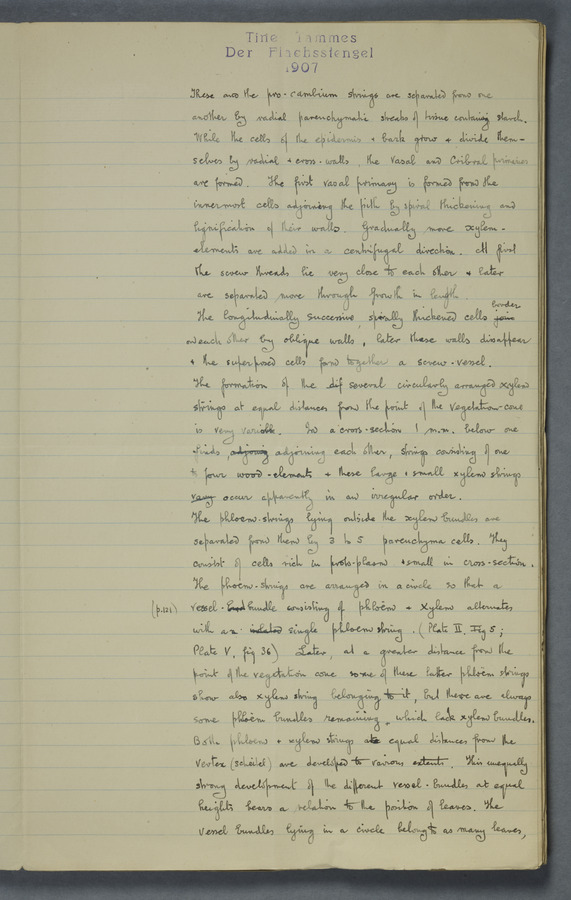 Tine Tammes
Der Flachsstengel
1907
These are the pro-cambium strings are separated from one
another by radial parenchymatic streaks of tissue containing starch.
While the cells of the epidermis + bark grow + divide them-
selves by radial + cross-walls, the Vasal and Cribral primaries
are formed. The first vasal primary is formed from the
innermost cells adjoining the pith by spiral thickening and
lignification of their walls. Gradually more xylem-
elements are added in a centrifugal direction. At first
the screw threads lie very close to each other + later
are separated more through growth in length.
border
The longitudinally successive, spirally thickened cells join
on each other by oblique walls, later these walls disappear
+ the superposed cells form together a screw-vessel.
The formation of the dif several circularly arranged xylem
strings at equal distances from the point of the vegetation-cone
is very variable. In a cross-section 1 m.m. below one
finds, adjoining adjoining each other, strings consisting of one
to four wood-elements + these large + small xylem strings
vary occur apparently in an irregular order.
The phloem-strings lying outside the xylem bundles are
separated from them by 3 to 5 parenchyma cells. They
consist of cells rich in proto-plasm + small in cross-section.
The phloem-strings are arranged in a circle so that a
(p.121) vessel-bund bundle consisting of phloëm + xylem alternates
with a isolated single phloem string. (Plate II, Fig 5;
Plate V, fig 36) Later, at a greater distance from the
point of the vegetation cone some of these latter phloëm strings
show also xylem string belonging to it, but there are always
some phloëm bundles remaining, which lack xylem bundles.
Both phloem + xylem strings at equal distances from the
Vertex (scheidel) are developed to various extents. This unequally
strong development of the different vessel-bundles at equal
heights bears a relation to the position of leaves. The
vessel bundles lying in a circle belong to as many leaves,